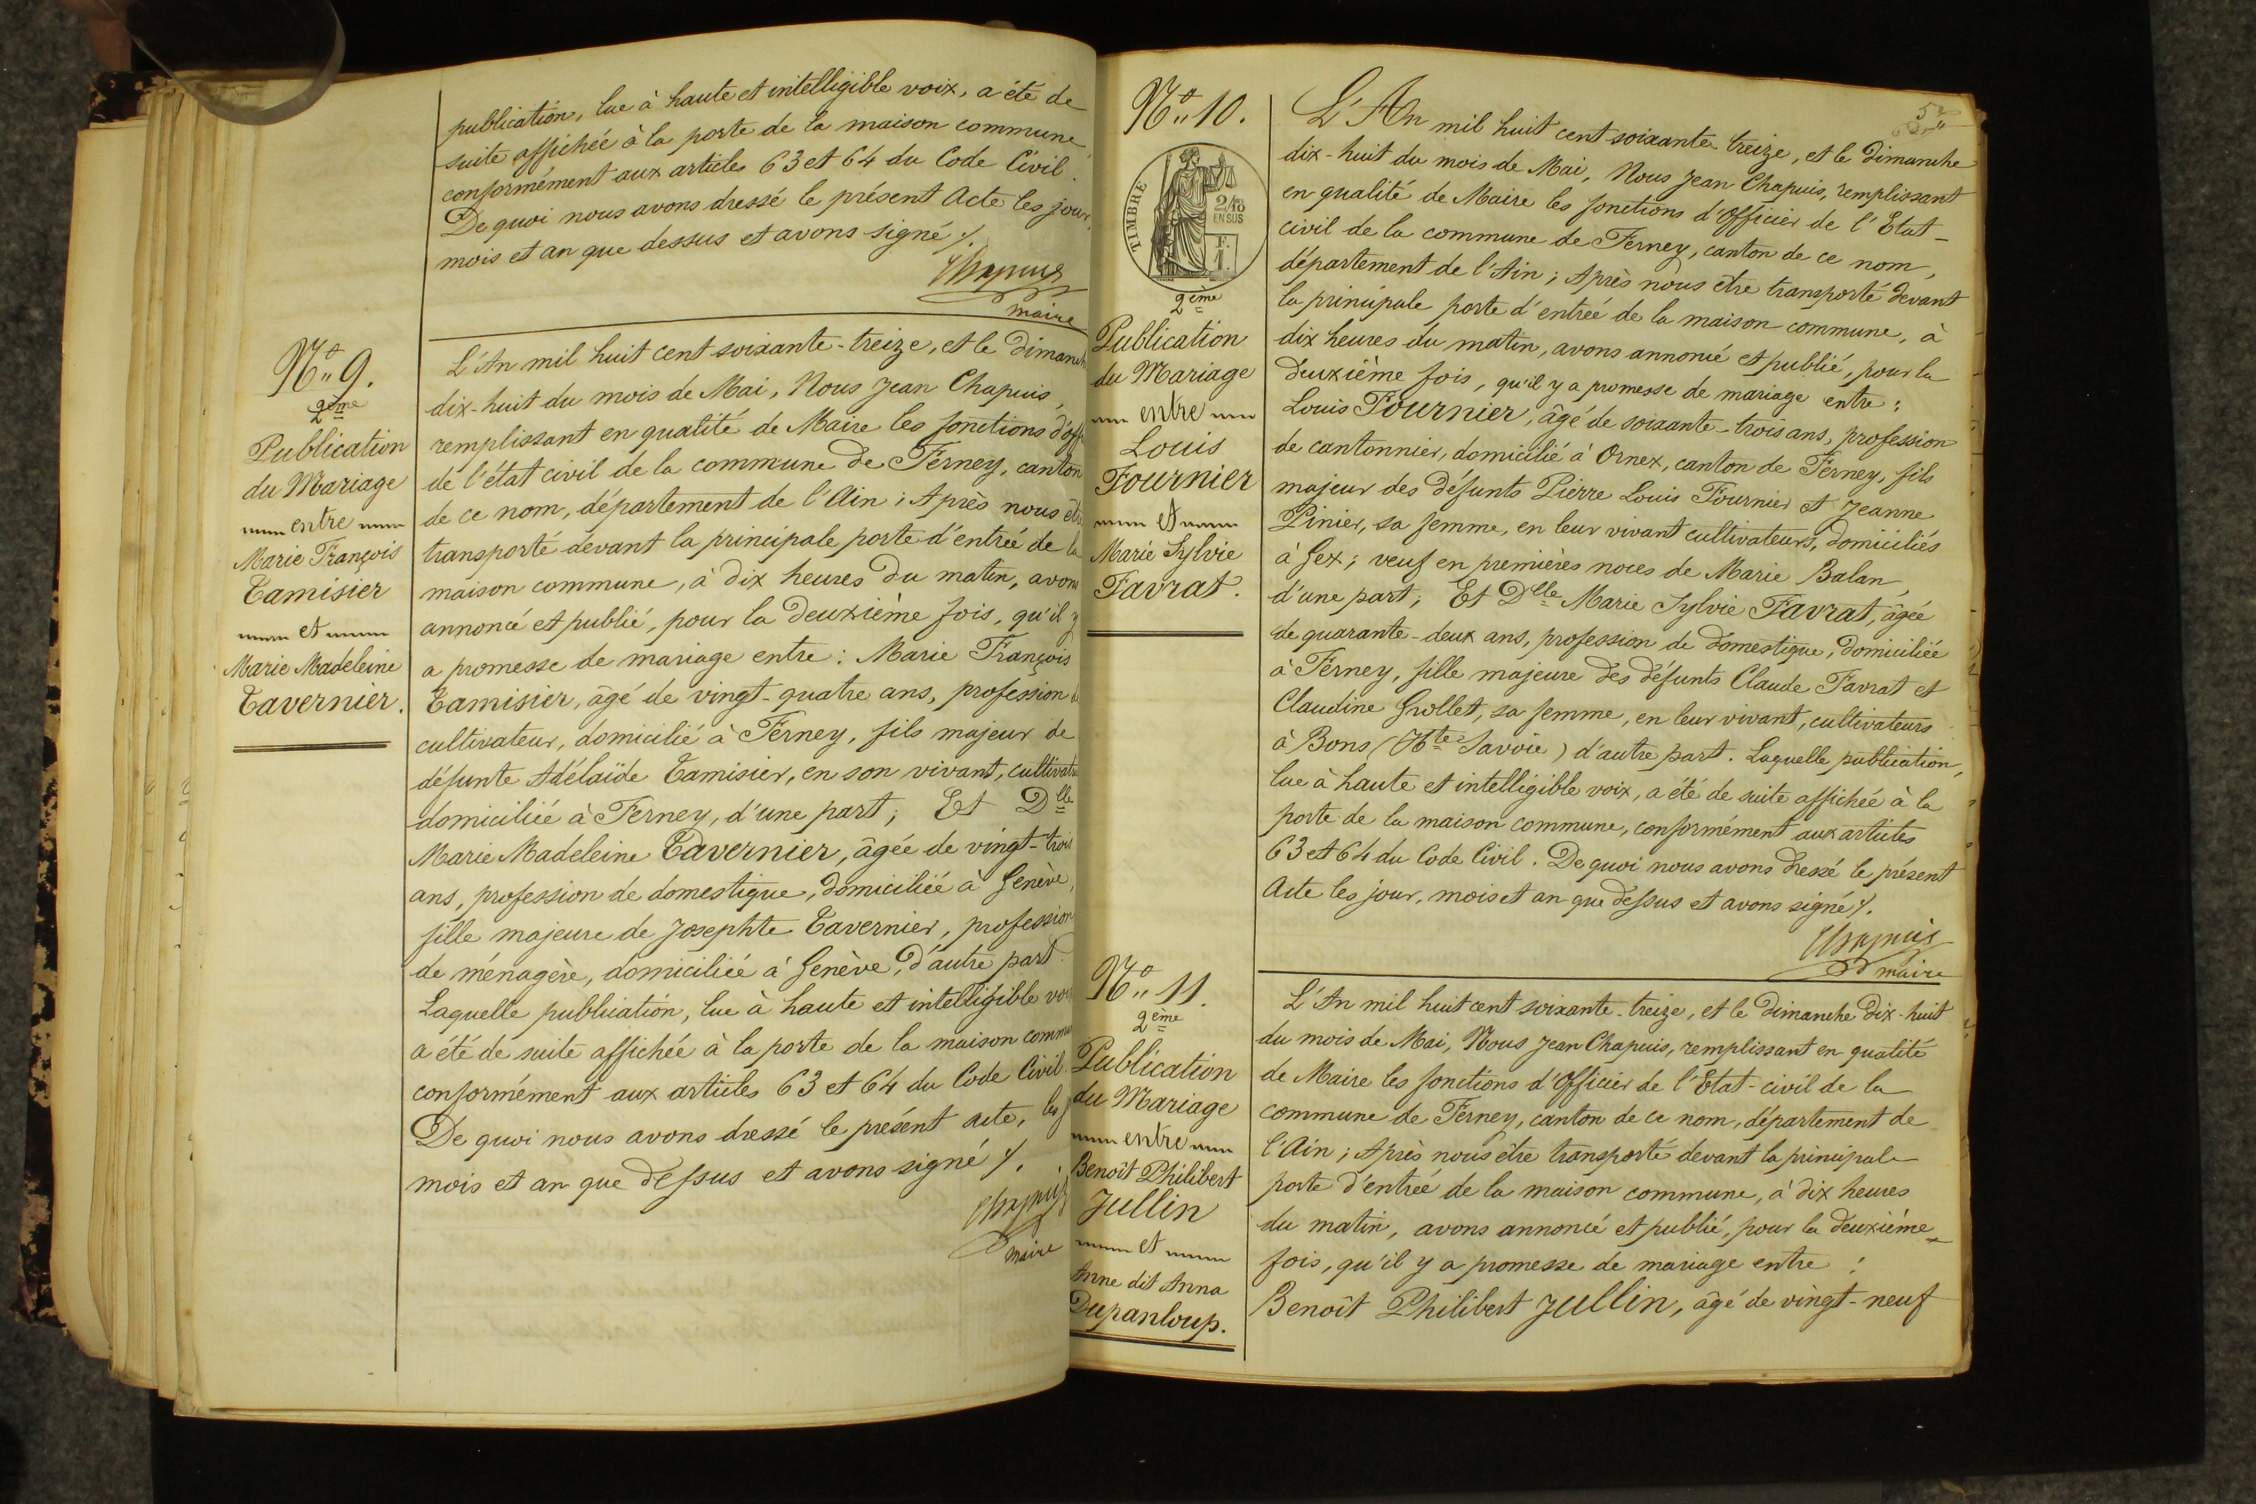 publication, lue à haute et intelligible voix, a été de
suite affichée à la porte de la maison commune
conformément aux articles 63 et 64 du Code Civil.
De quoi nous avons dressé le présent Acte les jour,
mois et an que dessus et avons signé /.
Chapuis
maire
No 9.
2ème
Publication
du Mariage
entre
Marie François
Tamisier
et
Marie Madeleine
Tavernier.
L'An mil huit cent soixante-treize, et le dimanch
dix-huit du mois de Mai, Nous Jean Chapuis,
remplissant en qualité de Maire les fonctions d'off
de l'état civil de la commune de Ferney, canton
de ce nom, département de l'Ain ; Après nous êt
transporté devant la principale porte d'entrée de la
maison commune, à dix heures du matin, avons
annoncé et publié, pour la deuxième fois, qu'il y
a promesse de mariage entre : Marie François
Tamisier, âgé de vingt-quatre ans, profession d
cultivateur, domicilié à Ferney, fils majeur de
défunte Adélaïde Tamisier, en son vivant, cultivat
domiciliée à Ferney, d'une part ; Et Dlle
Marie Madeleine Tavernier, âgée de vingt-trois
ans, profession de domestique, domiciliée à Genève,
fille majeure de Josephte Tavernier, profession
de ménagère, domiciliée à Genève, d'autre part.
Laquelle publication, lue à haute et intelligible voi
a été de suite affichée à la porte de la maison commu
conformément aux articles 63 et 64 du Code Civil.
De quoi nous avons dressé le présent acte, les j
mois et an que dessus et avons signé /.
Chapuis
maire
No 10.
TIMBRE
2/10
EN SUS
F.
1.
2ème
Publication
du Mariage
entre
Louis
Fournier
et
Marie Sylvie
Favrat.
L'An mil huit cent soixante treize, et le dimanche
dix-huit du mois de Mai, Nous Jean Chapuis, remplissant
en qualité de Maire les fonctions d'Officier de l'Etat-
civil de la commune de Ferney, canton de ce nom,
département de l'Ain ; Après nous être transporté devant
la principale porte d'entrée de la maison commune, à
dix heures du matin, avons annoncé et publié, pour la
deuxième fois, qu'il y a promesse de mariage entre :
Louis Fournier, âgé de soixante-trois ans, profession
de cantonnier, domicilié à Ornex, canton de Ferney, fils
majeur des défunts Pierre Louis Fournier et Jeanne
Pinier, sa femme, en leur vivant cultivateurs, domiciliés
à Gex ; veuf en premières noces de Marie Balan,
d'une part ; Et Dlle Marie Sylvie Favrat, âgée
de quarante-deux ans, profession de domestique, domiciliée
à Ferney, fille majeure des défunts Claude Favrat et
Claudine Grollet, sa femme, en leur vivant, cultivateurs
à Bons (Hte Savoie) d'autre part. Laquelle publication,
lue à haute et intelligible voix, a été de suite affichée à la
porte de la maison commune, conformément aux articles
63 et 64 du Code Civil. De quoi nous avons dressé le présent
Acte les jour, mois et an que dessus et avons signé /.
Chapuis
maire
No 11.
2ème
Publication
du Mariage
entre
Benoît Philibert
Jullin
et
Anne dit Anna
Dupanloup.
L'An mil huit cent soixante-treize, et le dimanche dix-huit
du mois de Mai, Nous Jean Chapuis, remplissant en qualité
de Maire les fonctions d'Officier de l'Etat-civil de la
commune de Ferney, canton de ce nom, département de
l'Ain ; Après nous être transporté devant la principale
porte d'entrée de la maison commune, à dix heures
du matin, avons annoncé et publié, pour la deuxième
fois, qu'il y a promesse de mariage entre :
Benoît Philibert Jullin, âgé de vingt-neuf